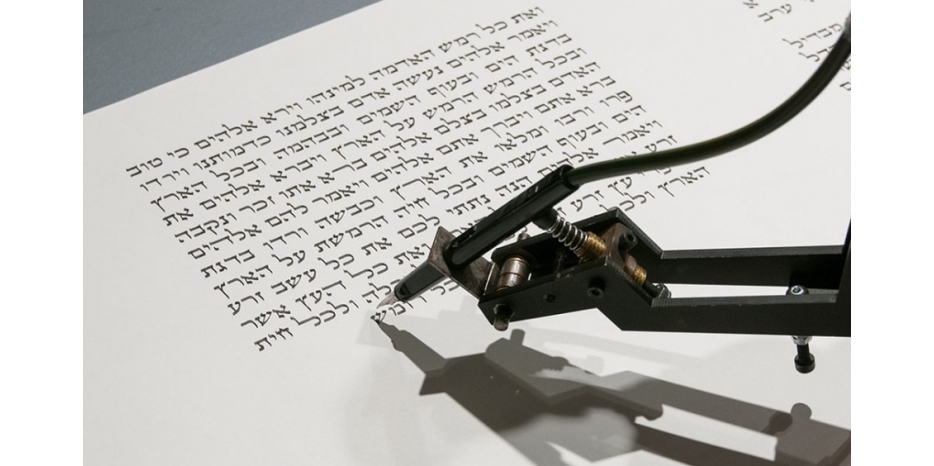 ואת כל רמש האדמה למינהו וירא אלהים כי טוב
ויאמר אלהים נעשה אדם בצלמנו כדמותנו וירדו
בדגת הים ובעוף השמים ובבהמה ובכל הארץ
ובכל הרמש הרמש על הארץ ויברא אלהים את
האדם בצלמו בצלם אלהים ברא אתו זכר ונקבה
ברא אתם ויברך אתם אלהים ויאמר להם אלהים
פרו ורבו ומלאו את הארץ וכבשה ורדו בדגת
הים ובעוף השמים ובכל חיה הרמשת על הארץ
ויאמר הנה נתתי לכם את כל עשב זרע
זרע את כל העץ אשר
עץ זרע ולכל חית
הארץ ולכל רמש